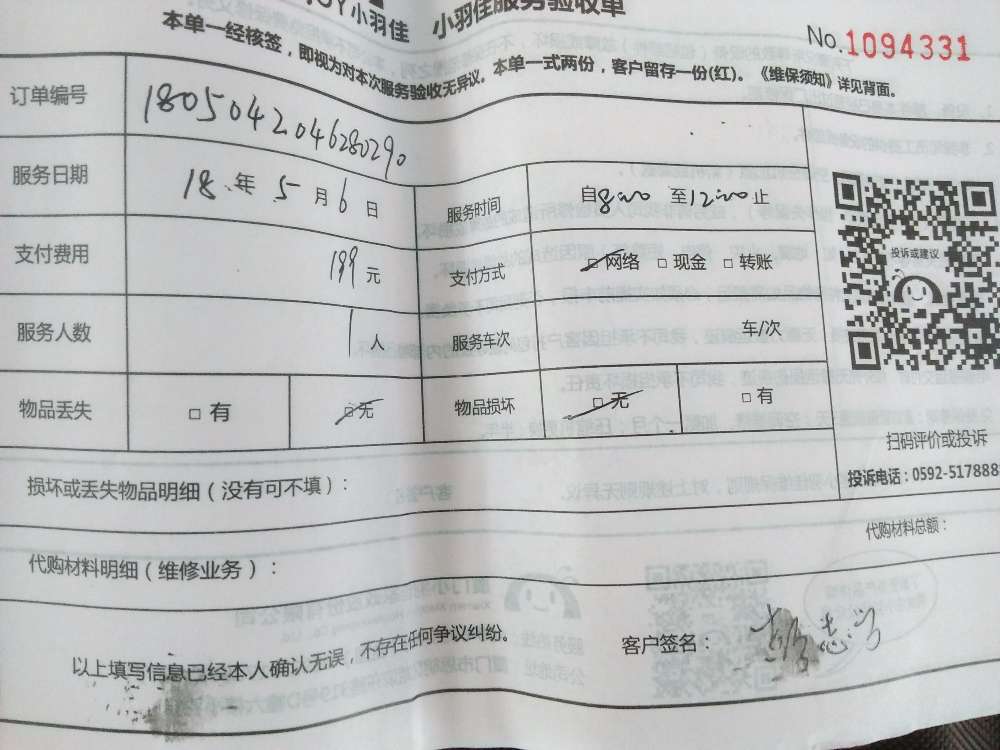 小羽佳 小羽佳服务验收单
No.1094331
本单一经核签，即视为对本次服务验收无异议。本单一式两份，客户留存一份(红)。《维保须知》详见背面。
订单编号 1805042046280290
服务日期 18年5月6日 服务时间 自8:00 至12:00止
支付费用 199元 支付方式 □网络 □现金 □转账
服务人数 1人 服务车次 车/次
物品丢失 □有 □无 物品损坏 □无 □有
投诉或建议
扫码评价或投诉
投诉电话：0592-5178888
损坏或丢失物品明细（没有可不填）：
代购材料总额：
代购材料明细（维修业务）：
以上填写信息已经本人确认无误，不存在任何争议纠纷。
客户签名：